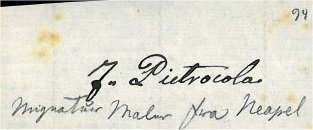 94
F. Pietrocola
Mignatur Maler fra Neapel